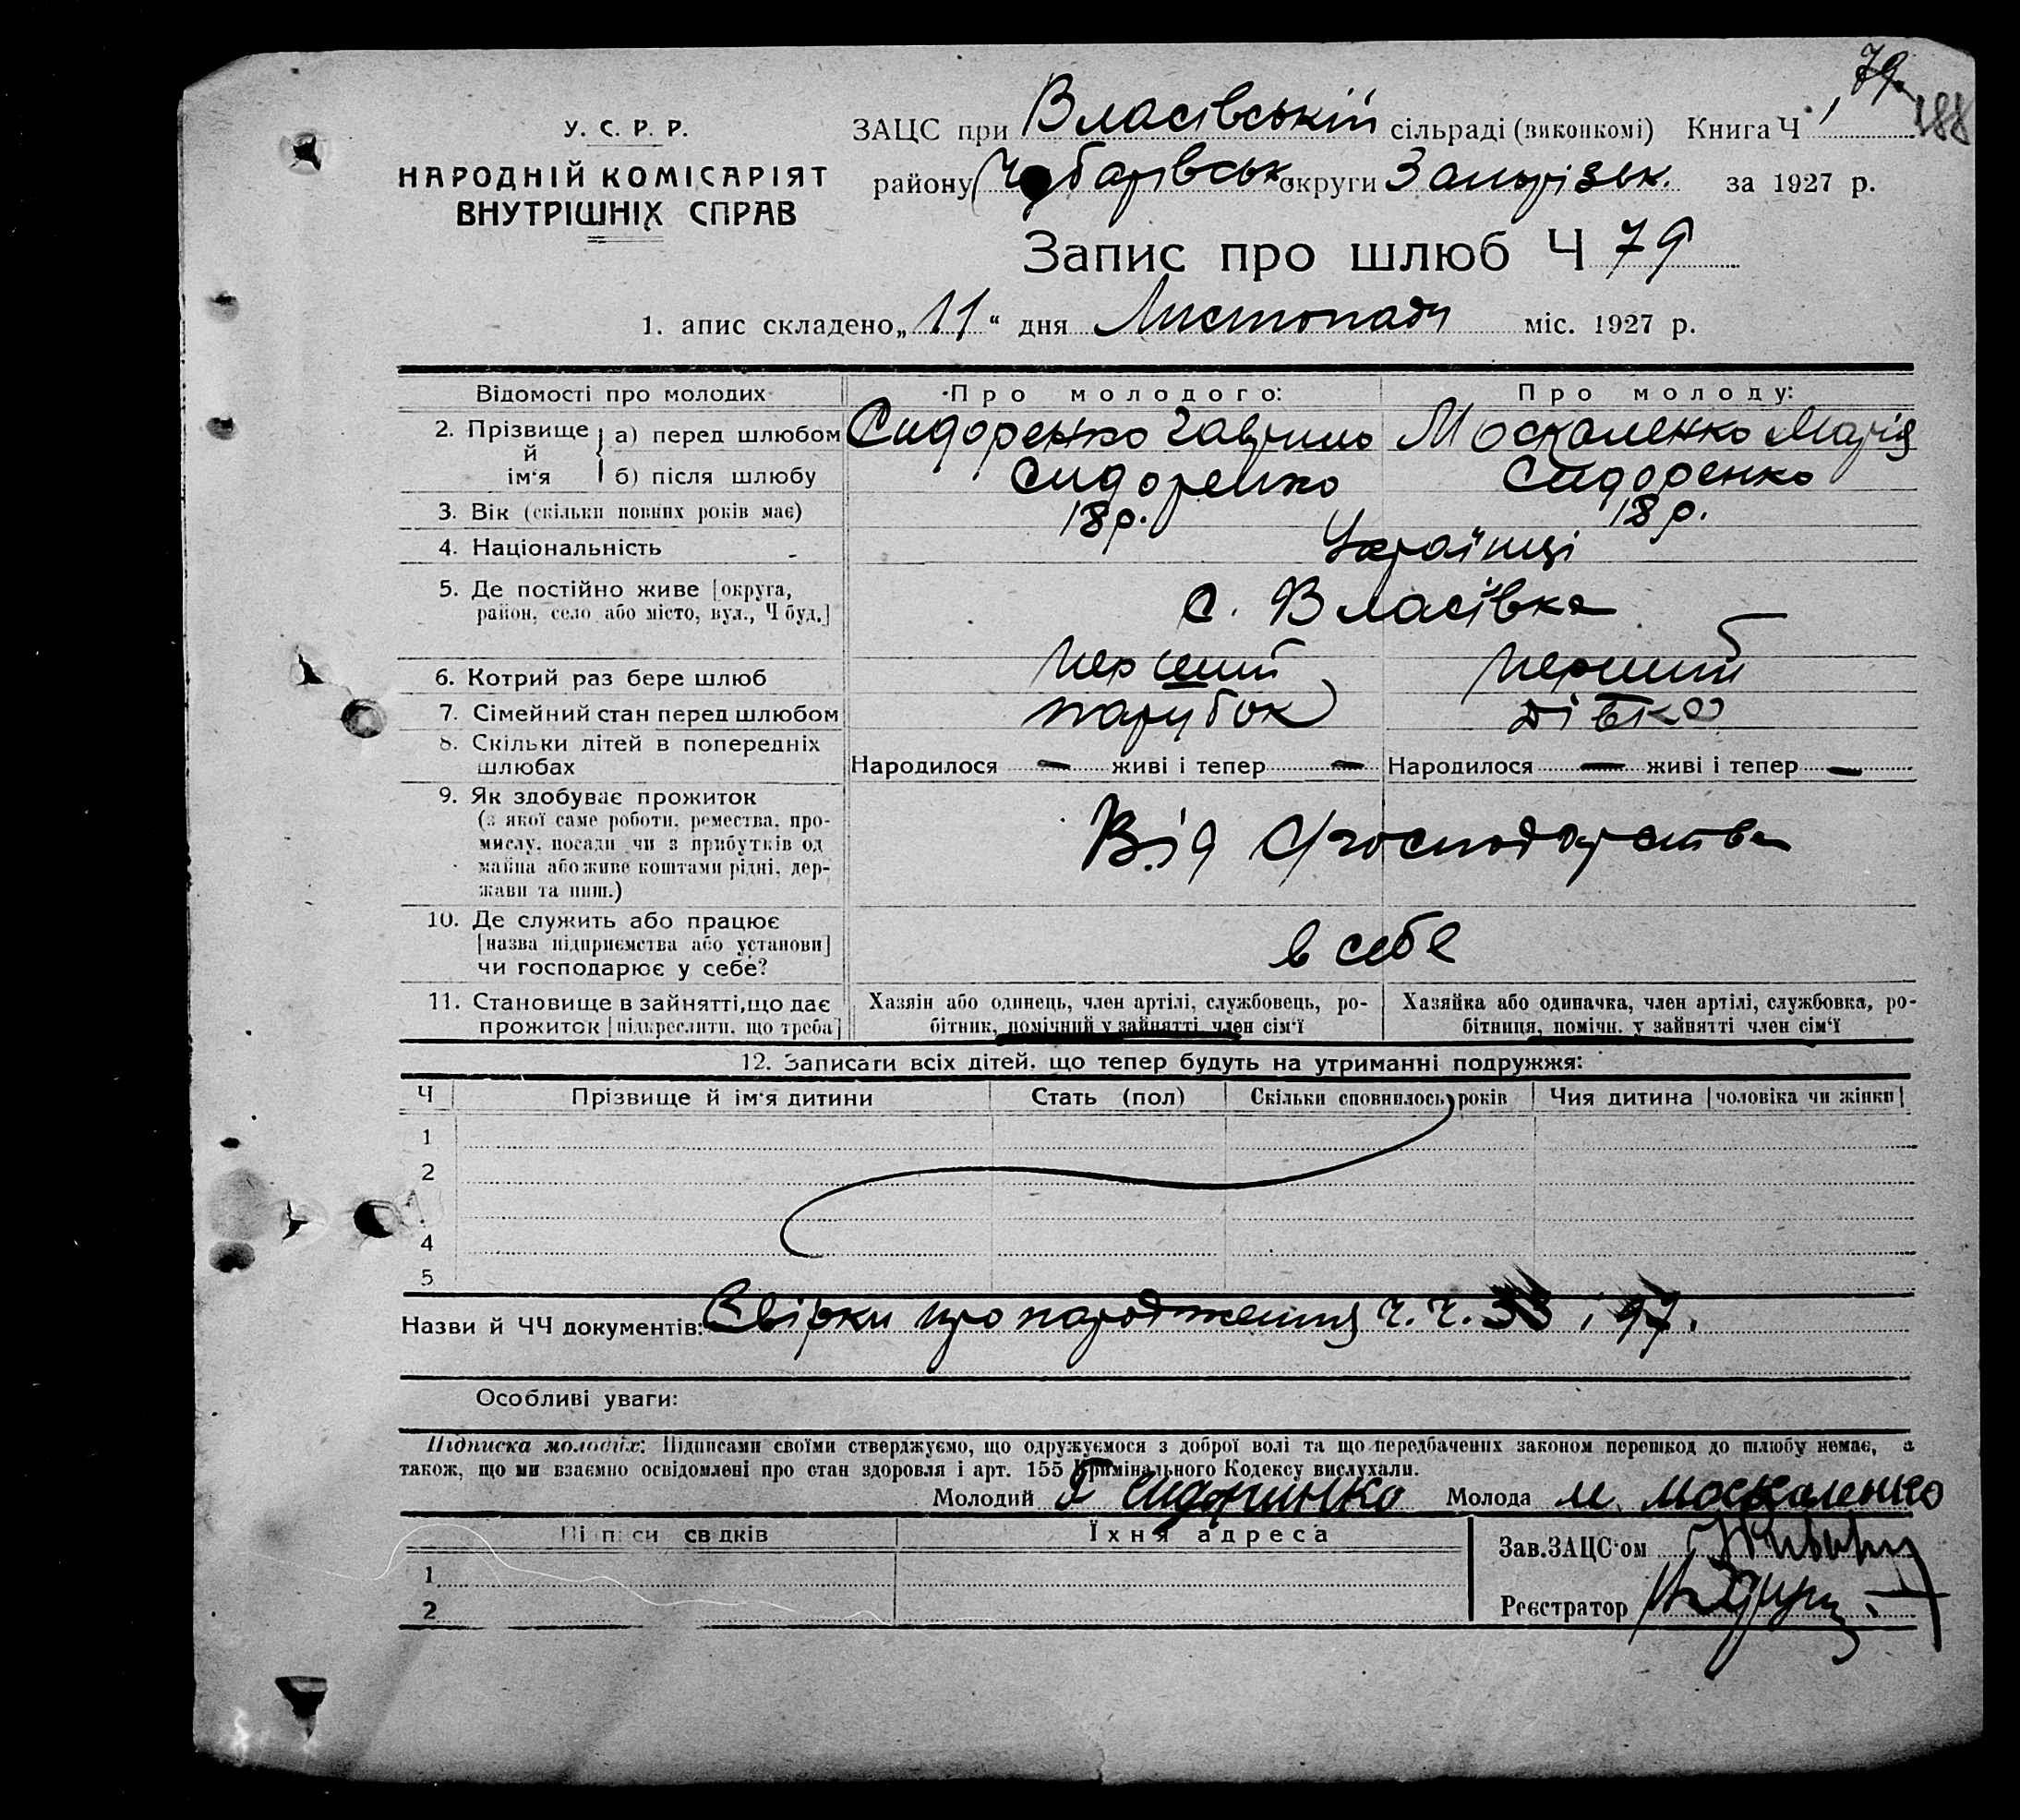 79
188
У. С. Р. Р.
НАРОДНІЙ КОМІСАРІЯТ
ВНУТРІШНІХ СПРАВ
ЗАЦС при Власівській сільраді (виконкомі) Книга Ч 1
району Чубарівськ. округи Запорізьк. за 1927 р.
Запис про шлюб Ч 79
1. апис складено „11“ дня Листопада міс. 1927 р.
Відомості про молодих Про молодого: Про молоду:
2. Прізвище й ім'я а) перед шлюбом Сидоренко Гаврило Москаленко Марія
б) після шлюбу Сидоренко Сидоренко
3. Вік (скільки повних років має) 18 р. 18 р.
4. Національність Українці
5. Де постійно живе [округа,
район, село або місто, вул., Ч буд.] с. Власівка
6. Котрий раз бере шлюб перший перший
7. Сімейний стан перед шлюбом парубок дівка
8. Скільки дітей в попередніх
шлюбах Народилося — живі і тепер — Народилося — живі і тепер —
9. Як здобуває прожиток
(з якої саме роботи, ремества, про-
мислу, посади чи з прибутків од
майна або живе коштами рідні, дер-
жави та инш.) Від господарства
10. Де служить або працює
[назва підприємства або установи]
чи господарює у себе? в себе
11. Становище в зайнятті, що дає
прожиток [підкреслити, що треба]
Хазяін або одинець, член артілі, службовець, ро-
бітник, помічний у зайнятті член сім'ї
Хазяйка або одиначка, член артілі, службовка, ро-
бітниця, помічн. у зайнятті член сім'ї
12. Записати всіх дітей, що тепер будуть на утриманні подружжя:
Ч Прізвище й ім'я дитини Стать (пол) Скільки сповнилось років Чия дитина [чоловіка чи жінки]
1
2
4
5
Назви й ЧЧ документів: Звірки про народження ч.ч. 33 і 97.
Особливі уваги:
Підписка молодих: Підписами своїми стверджуємо, що одружуємося з доброї волі та що передбачених законом перешкод до шлюбу немає, а
також, що ми взаємно освідомлені про стан здоровля і арт. 155 Кримінального Кодексу вислухали.
Молодий Г Сидоринко Молода М. Москаленко
Підписи свідків Їхня адреса
1
2
Зав. ЗАЦС'ом
Реєстратор